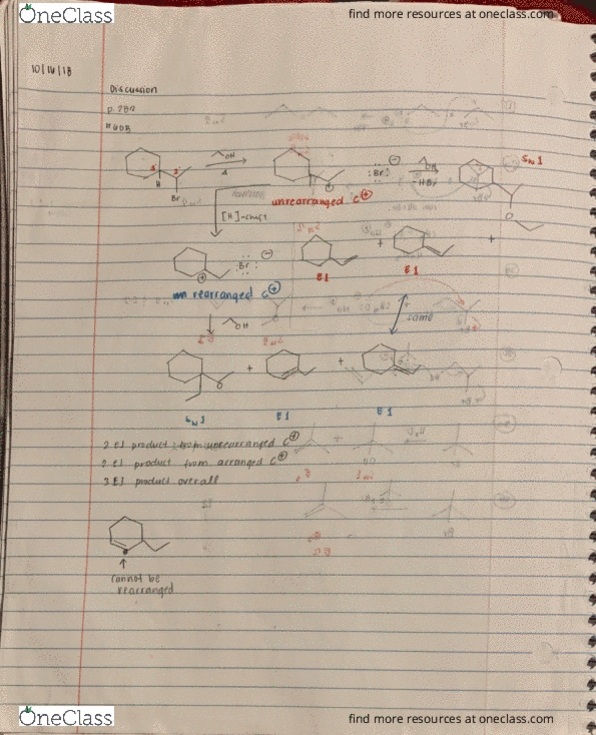 OneClass
find more resources at oneclass.com
10/16/18
Discussion
p. 284
OH
Δ
H
Br
unrearranged C⊕
:Br:
⊖
OH
-HBr
SN1
O
[H]-shift
:Br:
⊖
E1
+
E1
+
rearranged C⊕
OH
same
+
+
SN1
E1
E1
2 E1 product from unrearranged C⊕
2 E1 product from arranged C⊕
3 E1 product overall
↑
cannot be
rearranged
OneClass
find more resources at oneclass.com